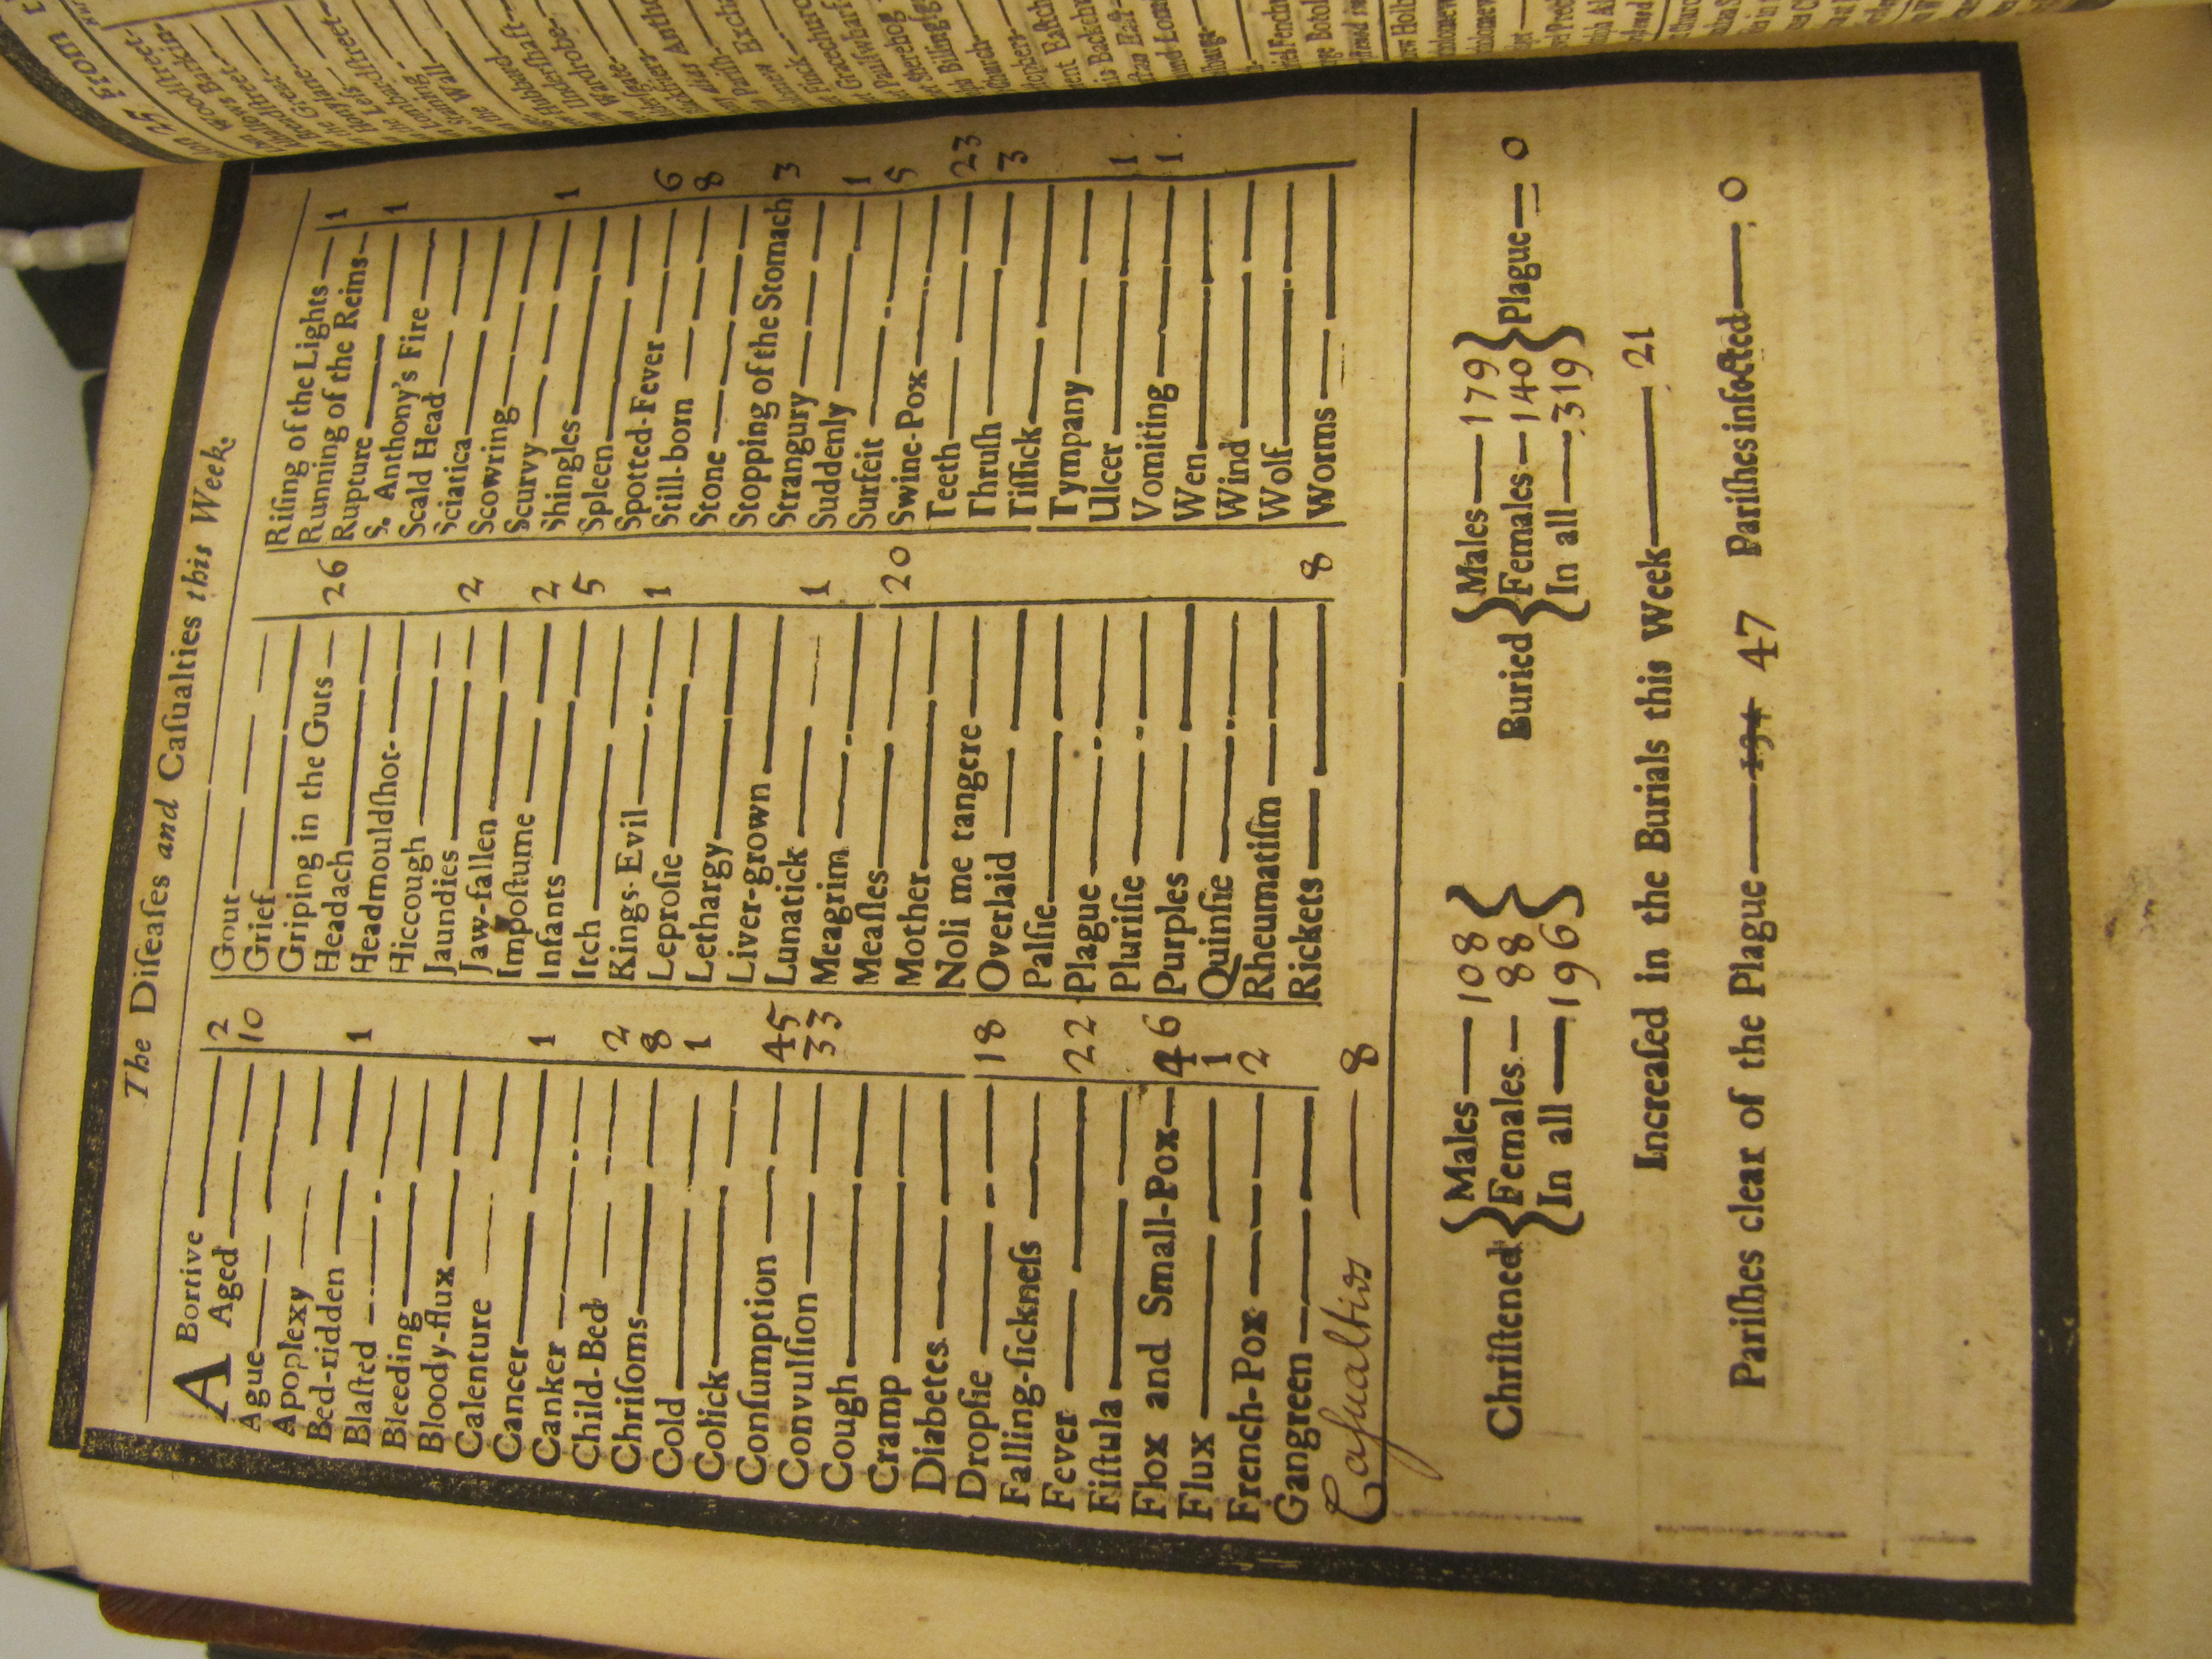 The Diſeaſes and Caſualties this Week.
ABortive 2
Aged 10
Ague
Apoplexy
Bed-ridden 1
Blaſted
Bleeding
Bloody-flux
Calenture
Cancer 1
Canker
Child-Bed 2
Chriſoms 8
Cold 1
Colick
Conſumption 45
Convulſion 33
Cough
Cramp
Diabetes
Dropſie 18
Falling-ſickneſs
Fever 22
Fiſtula
Flox and Small-Pox 46
Flux 1
French-Pox 2
Gangreen
Casualties 8
Gout
Grief
Griping in the Guts 26
Headach
Headmouldſhot
Hiccough
Jaundies 2
Jaw-fallen
Impoſtume 2
Infants 5
Itch
Kings-Evil 1
Leproſie
Lethargy
Liver-grown
Lunatick 1
Meagrim
Meaſles 20
Mother
Noli me tangere
Overlaid
Palſie
Plague
Pluriſie
Purples
Quinſie
Rheumatiſm
Rickets 8
Riſing of the Lights 1
Running of the Reins
Rupture 1
S. Anthony's Fire
Scald Head
Sciatica
Scowring
Scurvy 1
Shingles
Spleen
Spotted-Fever 6
Still-born 8
Stone
Stopping of the Stomach 3
Strangury
Suddenly 1
Surfeit 5
Swine-Pox
Teeth 23
Thruſh 3
Tiſſick
Tympany
Ulcer 1
Vomiting 1
Wen
Wind
Wolf
Worms
Chriſtened { Males 108 Females 88 In all 196 }
Buried { Males 179 Females 140 In all 319 } Plague 0
Increaſed in the Burials this Week 21
Pariſhes clear of the Plague 134 47 Pariſhes infected 0